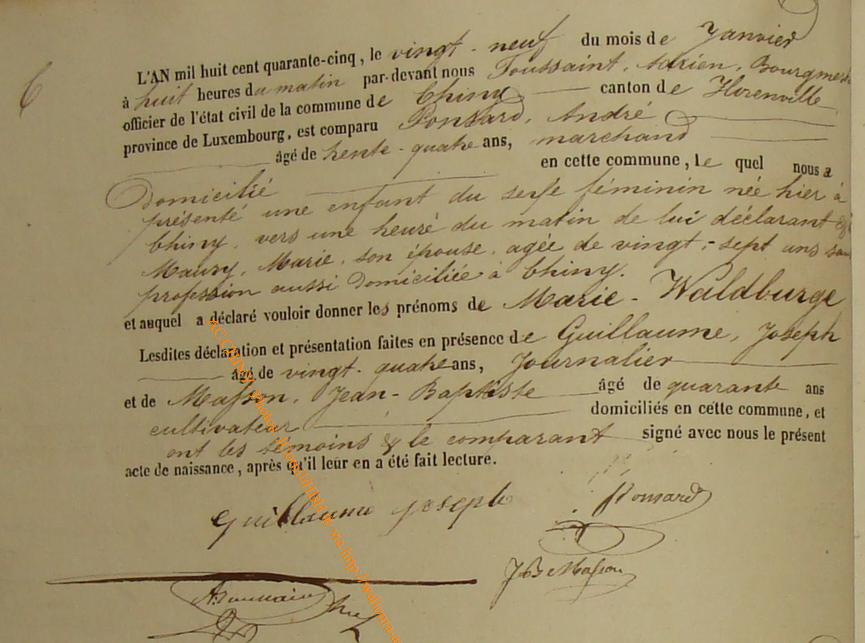 6
L'AN mil huit cent quarante-cinq, le vingt-neuf du mois de Janvier
à huit heures du matin par-devant nous Toussaint, Adrien, Bourgmestre
officier de l'état civil de la commune de Chiny canton de Florenville
province de Luxembourg, est comparu Ponsard, André
âgé de trente-quatre ans, marchand
Domicilié en cette commune, le quel nous a
présenté une enfant du sexe féminin née hier à
Chiny, vers une heure du matin de lui déclarant et
Maury, Marie, son épouse, agée de vingt-sept ans sans
profession aussi domiciliée à Chiny.
et auquel a déclaré vouloir donner les prénoms de Marie-Waldburge
Lesdites déclaration et présentation faites en présence de Guillaume, Joseph
âgé de vingt-quatre ans, Journalier
et de Masson, Jean-Baptiste âgé de quarante ans
cultivateur domiciliés en cette commune, et
ont les témoins & le comparant signé avec nous le présent
acte de naissance, après qu'il leur en a été fait lecture.
Guillaume Joseph
Ponsard
JB Masson